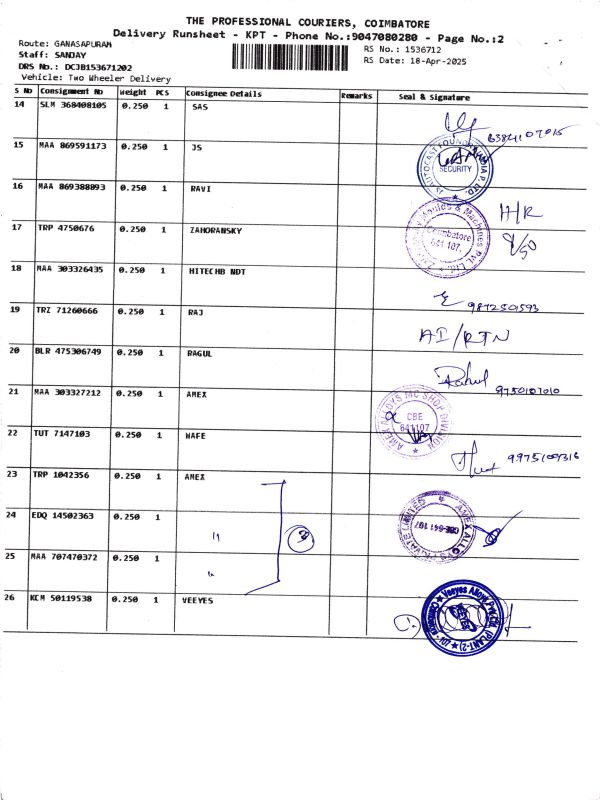 THE PROFESSIONAL COURIERS, COIMBATORE
Delivery Runsheet - KPT - Phone No.:9047080280 - Page No.:2
Route: GANASAPURAM
RS No.: 1536712
Staff: SANJAY
RS Date: 18-Apr-2025
DRS No.: DCJB153671202
Vehicle: Two Wheeler Delivery
S No Consignment No Weight PCS Consignee Details Remarks Seal & Signature
14 SLM 368408105 0.250 1 SAS
15 MAA 869591173 0.250 1 JS
SECURITY
16 MAA 869388893 0.250 1 RAVI
H/R
17 TRP 4750676 0.250 1 ZAHORANSKY
Coimbatore
641 107.
18 MAA 303326435 0.250 1 HITECHB NDT
9872501593
19 TRZ 71260666 0.250 1 RAJ
AI/RTN
20 BLR 475306749 0.250 1 RAGUL
Rahul
9750107010
21 MAA 303327212 0.250 1 AMEX
CBE
641107
22 TUT 7147103 0.250 1 WAFE
23 TRP 1042356 0.250 1 AMEX
24 EDQ 14502363 0.250 1 "
AMEX ALLOYS PRIVATE LIMITED
CBE-641 107
25 MAA 707470372 0.250 1 "
26 KCM 50119538 0.250 1 VEEYES